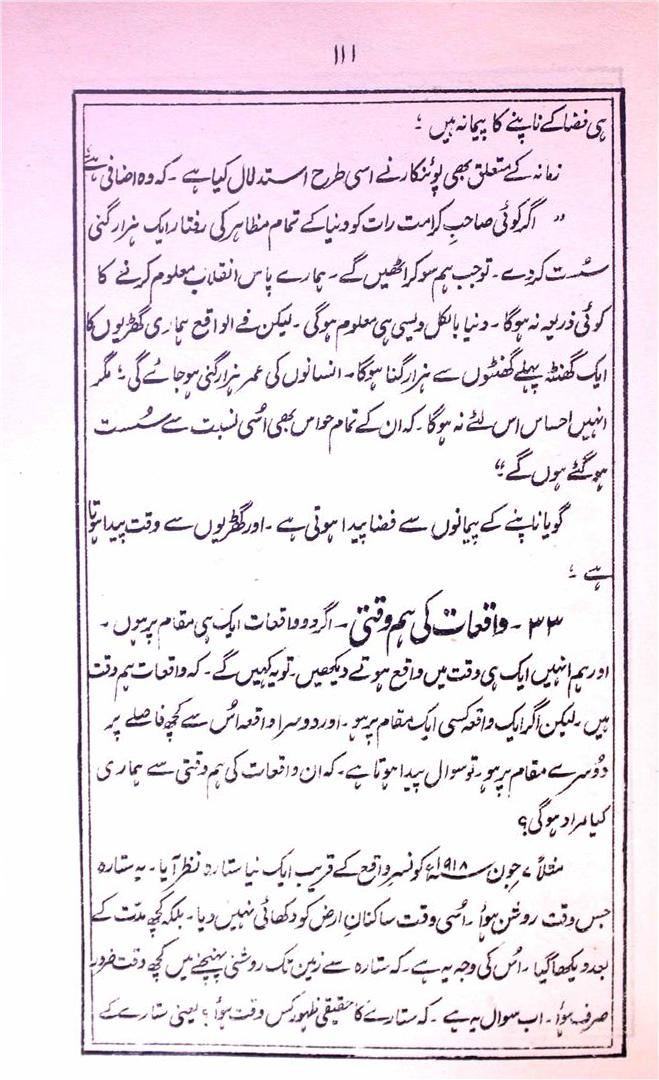 ۱۱۱
ہی فضا کے ناپنے کا پیمانہ ہیں ؛
زمانہ کے متعلق بھی پوئنکارنے اسی طرح استدلال کیا ہے ۔ کہ وہ اضافی ہے ؛
" اگر کوئی صاحبِ کرامت رات کو دنیا کے تمام مظاہر کی رفتار ایک ہزار گنی
سُست کر دے ۔ تو جب ہم سو کر اٹھیں گے ۔ ہمارے پاس انقلاب معلوم کرنے کا
کوئی ذریعہ نہ ہوگا ۔ دنیا بالکل ویسی ہی معلوم ہوگی ۔ لیکن فے الواقع ہماری گھڑیوں کا
ایک گھنٹہ پہلے گھنٹوں سے ہزار گنا ہوگا ۔ انسانوں کی عمر ہزار گنی ہو جائے گی ؛ مگر
انہیں احساس اس لئے نہ ہوگا ۔ کہ ان کے تمام حواس بھی اُسی نسبت سے سُست
ہو گئے ہوں گے "؛
گویا ناپنے کے پیمانوں سے فضا پیدا ہوتی ہے ۔ اور گھڑیوں سے وقت پیدا ہوتا
ہے ؛
۳۳ ۔ واقعات کی ہم وقتی ۔ اگر دو واقعات ایک ہی مقام پر ہوں ۔
اور ہم انہیں ایک ہی وقت میں واقع ہوتے دیکھیں ۔ تو یہ کہیں گے ۔ کہ واقعات ہم وقت
ہیں ۔ لیکن اگر ایک واقعہ کسی ایک مقام پر ہو ۔ اور دوسرا واقعہ اُس سے کچھ فاصلے پر
دُوسرے مقام پر ہو ۔ تو سوال پیدا ہوتا ہے ۔ کہ ان واقعات کی ہم وقتی سے ہماری
کیا مراد ہوگی ؟
مثلاً ۷ جون ۱۹۱۸ء کو نسر واقع کے قریب ایک نیا ستارہ نظر آیا ۔ یہ ستارہ
جس وقت روشن ہؤا ۔ اُسی وقت ساکنانِ ارض کو دکھائی نہیں دیا ۔ بلکہ کچھ مدّت کے
بعد دیکھا گیا ۔ اُس کی وجہ یہ ہے ۔ کہ ستارہ سے زمین تک روشنی پہنچنے میں کچھ وقت ضرور
صرف ہؤا ۔ اب سوال یہ ہے ۔ کہ ستارے کا حقیقی ظہور کس وقت ہؤا ؟ یعنی ستارے کے